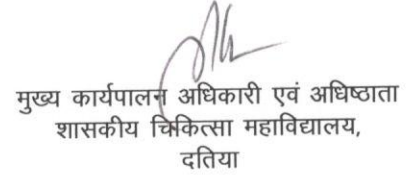 मुख्य कार्यपालन अधिकारी एवं अधिष्ठाता
शासकीय चिकित्सा महाविद्यालय,
दतिया